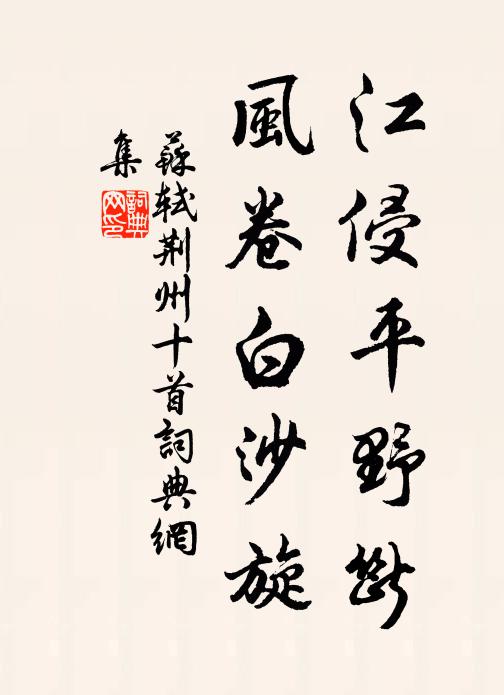 江侵平野斷
風卷白沙旋
蘇軾荆州十首詞典網
集
詞典网印